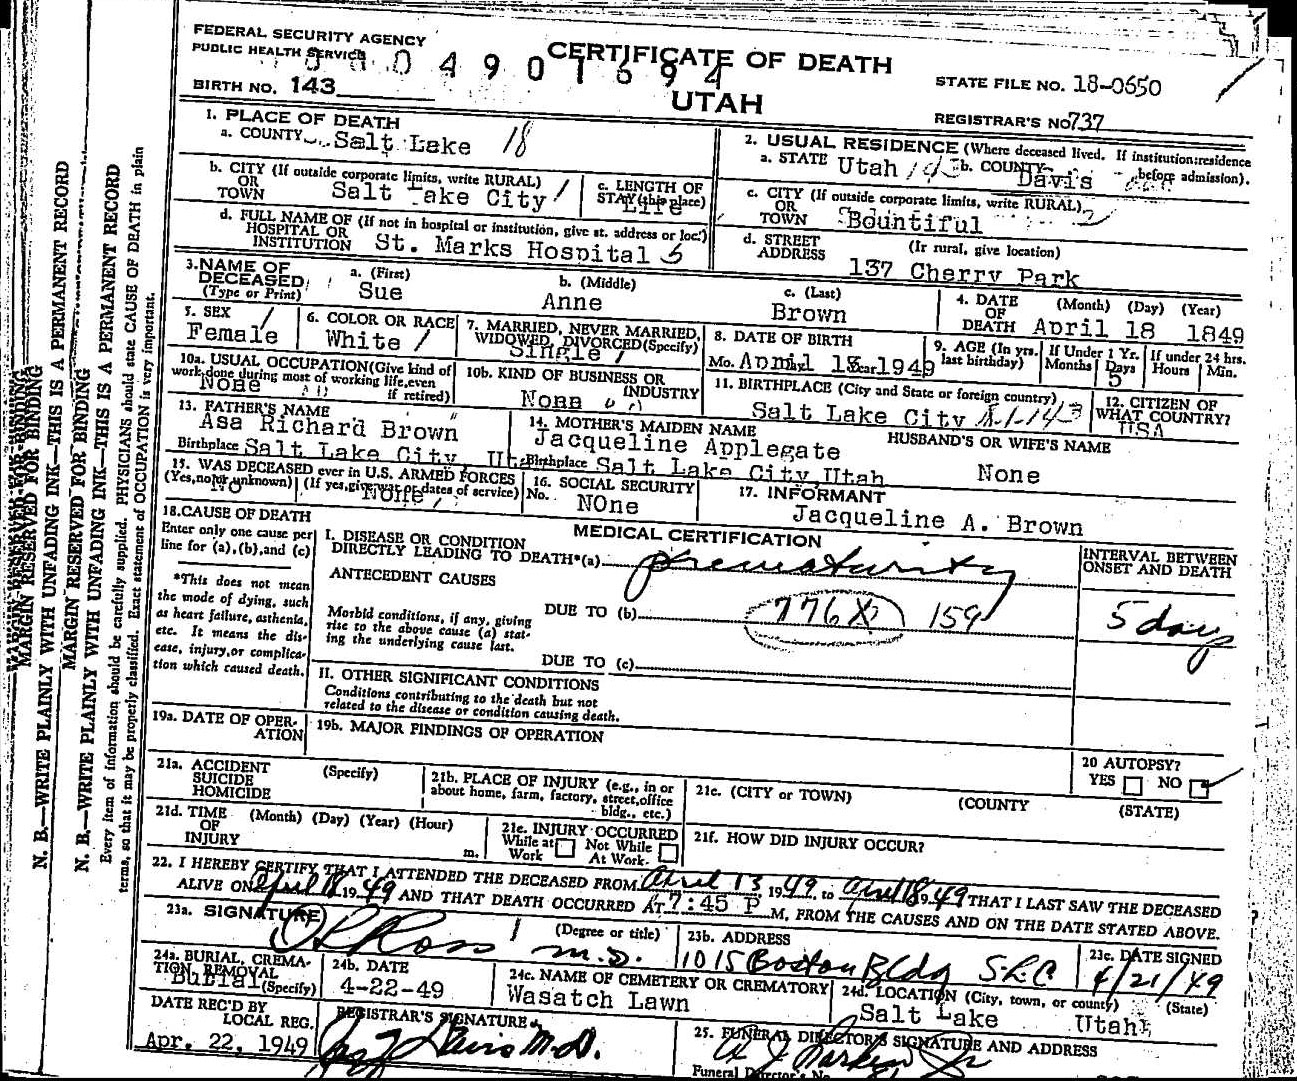 FEDERAL SECURITY AGENCY
PUBLIC HEALTH SERVICE
CERTIFICATE OF DEATH
UTAH
BIRTH NO. 143
STATE FILE NO. 18-0650
REGISTRAR'S NO 737
1. PLACE OF DEATH
a. COUNTY Salt Lake 18
2. USUAL RESIDENCE (Where deceased lived. If institution: residence before admission).
a. STATE Utah 143 b. COUNTY Davis
b. CITY (If outside corporate limits, write RURAL) OR TOWN Salt Lake City
c. LENGTH OF STAY (this place) Life
c. CITY (If outside corporate limits, write RURAL) OR TOWN Bountiful 2
d. FULL NAME OF HOSPITAL OR INSTITUTION (If not in hospital or institution, give st. address or loc.) St. Marks Hospital 5
d. STREET ADDRESS (Ir rural, give location)
137 Cherry Park
3. NAME OF DECEASED (Type or Print)
a. (First) Sue
b. (Middle) Anne
c. (Last) Brown
4. DATE OF DEATH (Month) (Day) (Year) April 18 1849
5. SEX Female
6. COLOR OR RACE White
7. MARRIED, NEVER MARRIED, WIDOWED, DIVORCED (Specify) Single
8. DATE OF BIRTH
Mo. April 13 Year 1949
9. AGE (In yrs. last birthday)
If Under 1 Yr. Months Days 5
If under 24 hrs. Hours Min.
10a. USUAL OCCUPATION (Give kind of work done during most of working life, even if retired) None
10b. KIND OF BUSINESS OR INDUSTRY None
11. BIRTHPLACE (City and State or foreign country)
Salt Lake City
12. CITIZEN OF WHAT COUNTRY? USA
13. FATHER'S NAME
Asa Richard Brown
Birthplace Salt Lake City, Utah
14. MOTHER'S MAIDEN NAME
Jacqueline Applegate
Birthplace Salt Lake City, Utah
HUSBAND'S OR WIFE'S NAME
None
15. WAS DECEASED ever in U.S. ARMED FORCES
(Yes, no, or unknown) No (If yes, give war or dates of service) None
16. SOCIAL SECURITY No. NOne
17. INFORMANT
Jacqueline A. Brown
18. CAUSE OF DEATH
Enter only one cause per line for (a), (b), and (c)
*This does not mean the mode of dying, such as heart failure, asthenia, etc. It means the disease, injury, or complication which caused death.
MEDICAL CERTIFICATION
I. DISEASE OR CONDITION
DIRECTLY LEADING TO DEATH*(a) prematurity
INTERVAL BETWEEN ONSET AND DEATH
5 days
ANTECEDENT CAUSES
Morbid conditions, if any, giving rise to the above cause (a) stating the underlying cause last.
DUE TO (b) 776X 159
DUE TO (c)
II. OTHER SIGNIFICANT CONDITIONS
Conditions contributing to the death but not related to the disease or condition causing death.
19a. DATE OF OPERATION
19b. MAJOR FINDINGS OF OPERATION
20 AUTOPSY?
YES NO
21a. ACCIDENT SUICIDE HOMICIDE (Specify)
21b. PLACE OF INJURY (e.g., in or about home, farm, factory, street, office bldg., etc.)
21c. (CITY or TOWN) (COUNTY (STATE)
21d. TIME OF INJURY (Month) (Day) (Year) (Hour) m.
21e. INJURY OCCURRED While at Work Not While At Work
21f. HOW DID INJURY OCCUR?
22. I HEREBY CERTIFY THAT I ATTENDED THE DECEASED FROM April 13 1949 to April 18 1949 THAT I LAST SAW THE DECEASED
ALIVE ON April 18 1949 AND THAT DEATH OCCURRED AT 7:45 P M, FROM THE CAUSES AND ON THE DATE STATED ABOVE.
23a. SIGNATURE Ross M.D. (Degree or title)
23b. ADDRESS
1015 Boston Bldg S.L.C
23c. DATE SIGNED
4/21/49
24a. BURIAL, CREMATION, REMOVAL (Specify) Burial
24b. DATE
4-22-49
24c. NAME OF CEMETERY OR CREMATORY
Wasatch Lawn
24d. LOCATION (City, town, or county) (State)
Salt Lake Utah
DATE REC'D BY LOCAL REG.
Apr. 22, 1949
REGISTRAR'S SIGNATURE
M.D.
25. FUNERAL DIRECTOR'S SIGNATURE AND ADDRESS
Funeral Director's No.
MARGIN RESERVED FOR BINDING
N. B.—WRITE PLAINLY WITH UNFADING INK—THIS IS A PERMANENT RECORD
MARGIN RESERVED FOR BINDING
N. B.—WRITE PLAINLY WITH UNFADING INK—THIS IS A PERMANENT RECORD
Every item of information should be carefully supplied. PHYSICIANS should state CAUSE OF DEATH in plain
terms, so that it may be properly classified. Exact statement of OCCUPATION is very important.